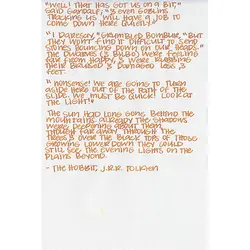 "Well! That has got us on a bit,"
said Gandalf; "& even goblins
tracking us will have a job to
come down here quietly."
"I daresay," grumbled Bombur, "but
they won't find it difficult to send
stones bouncing down on our heads."
The dwarves (& Bilbo) were feeling
far from happy, & were rubbing
their bruised & damaged legs &
feet.
"Nonsense! We are going to turn
aside here out of the path of the
slide. We must be quick! Look at
the light!"
The sun had long gone behind the
mountains. Already the shadows
were deepening about them,
though far away through the
trees & over the black tops of those
growing lower down they could
still see the evening lights on the
plains beyond.
- The Hobbit, J.R.R. Tolkien